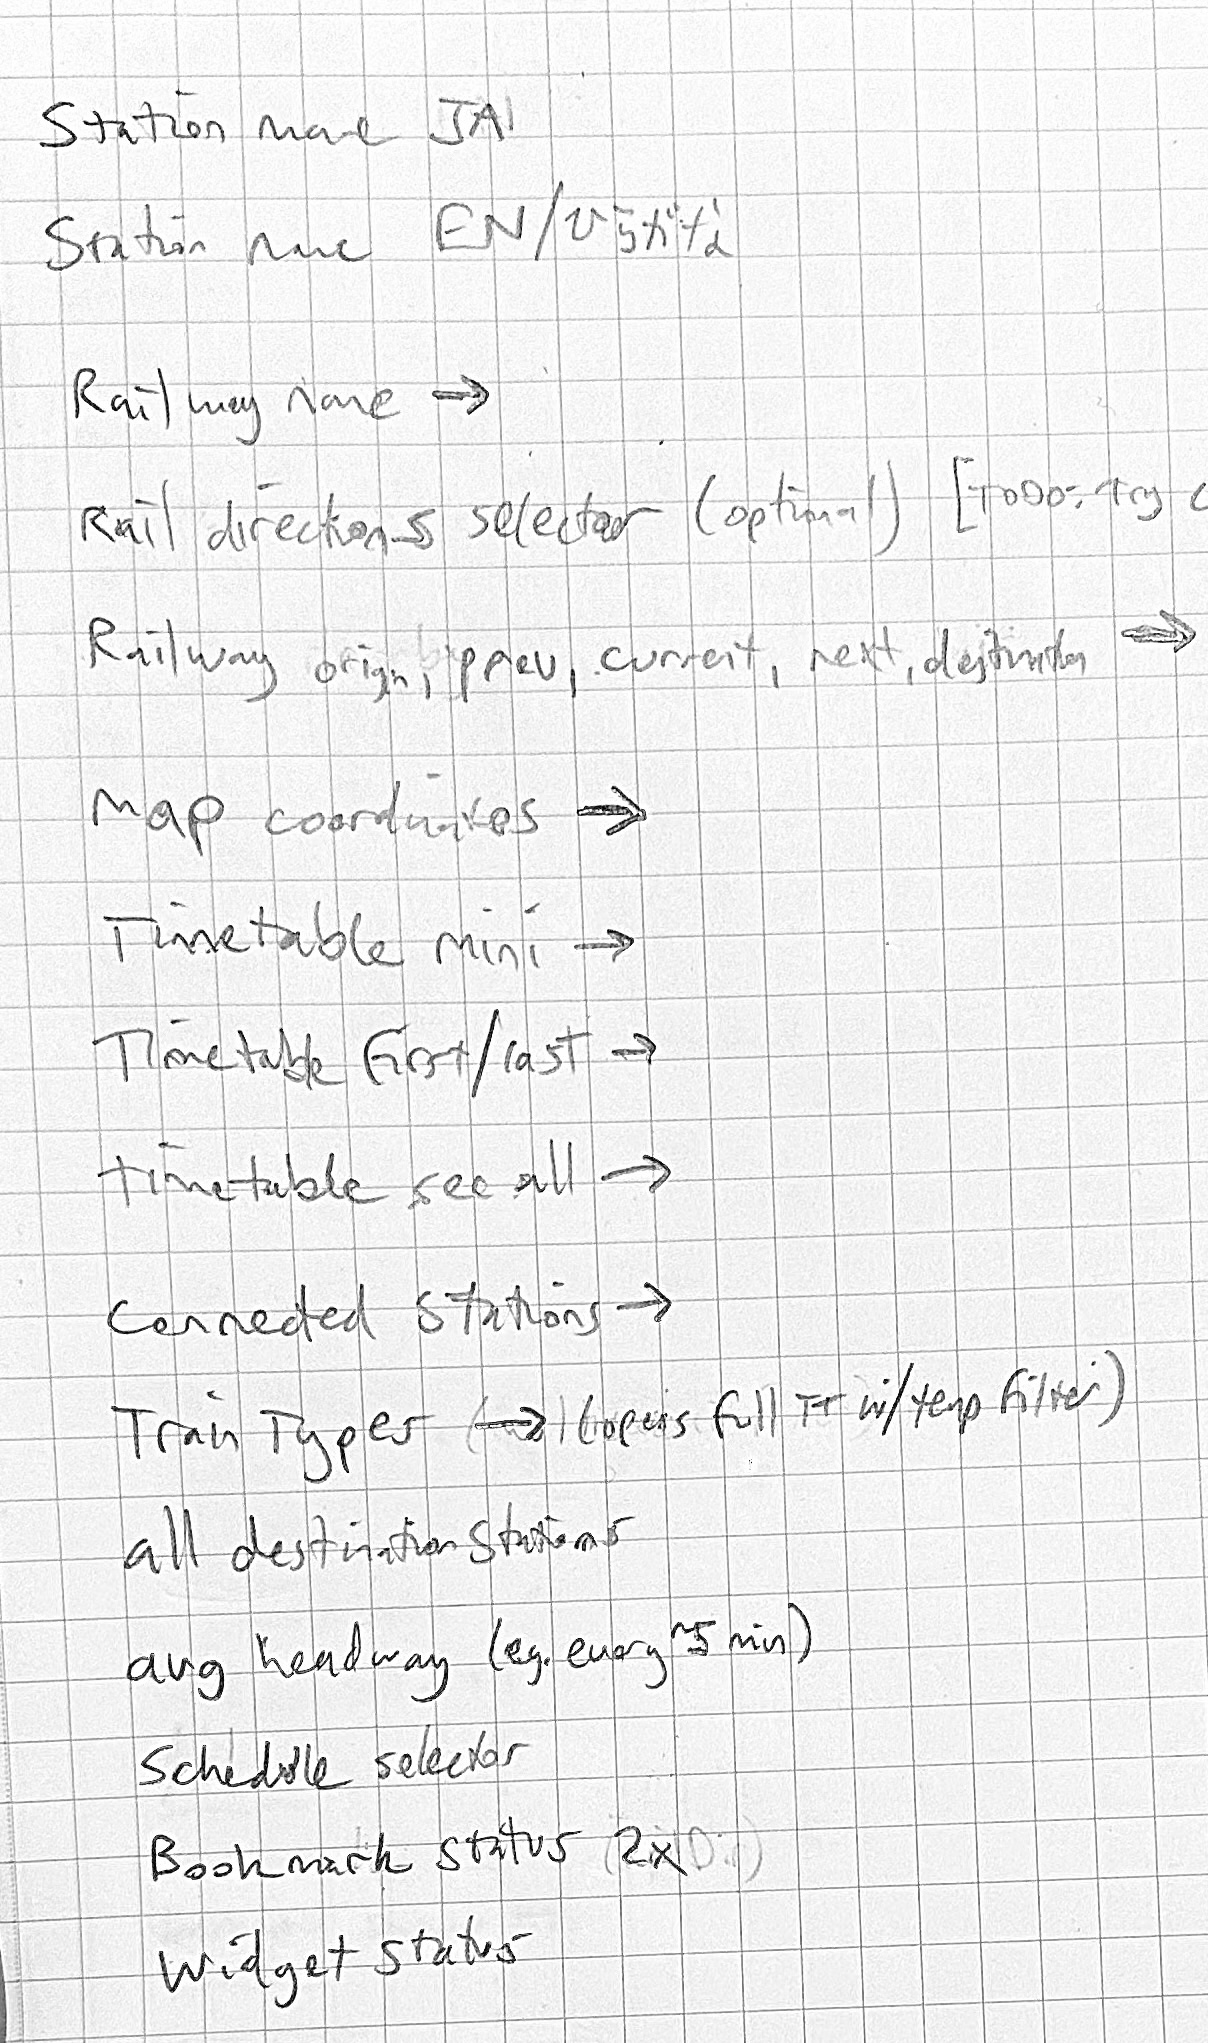 Station name JA
Station name EN/ひらがな
Railway name →
Rail directions selector (optional) [TODO: try
Railway origin, prev, current, next, destination →
Map coordinates →
Timetable mini →
Timetable first/last →
timetable see all →
Connected stations →
Train Types (→) (opens full TT w/temp filter)
all destination stations
avg headway (eg. every ~5 min)
Schedule selector
Bookmark status (2x Dir)
Widget status